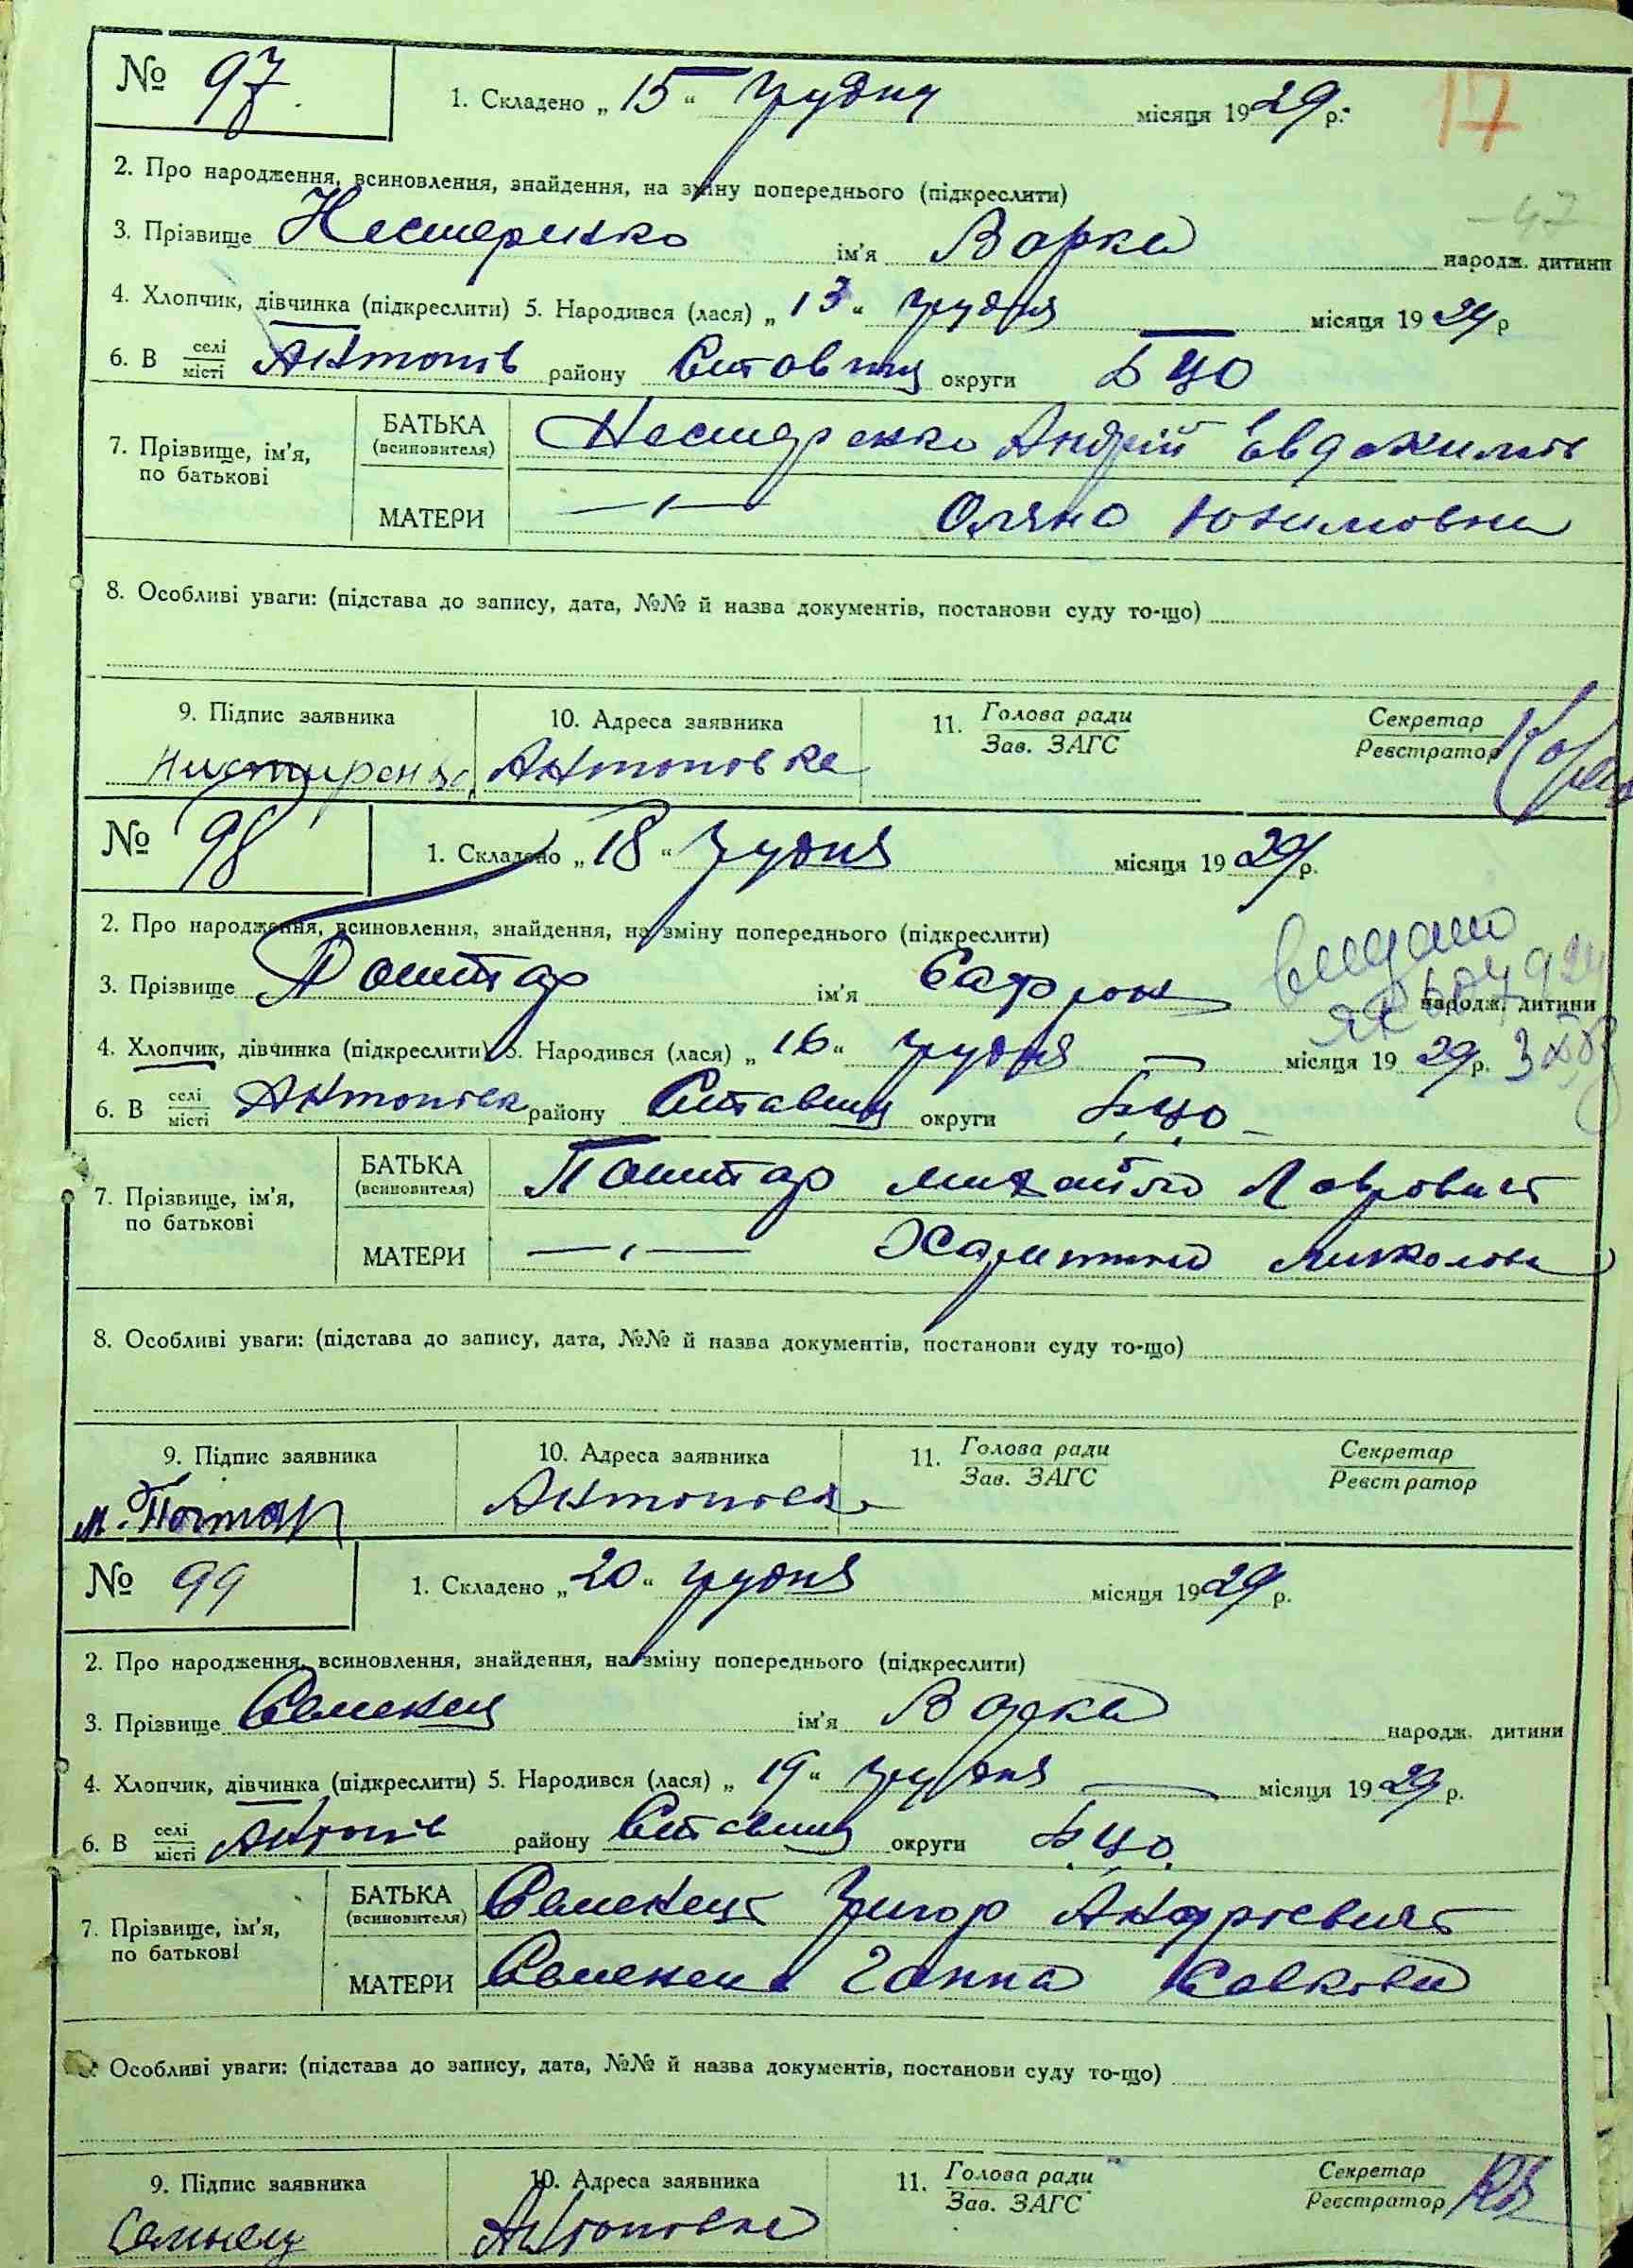 № 97
1. Складено „ 15 “ грудня місяця 1929 р.
17
2. Про народження, всиновлення, знайдення, на зміну попереднього (підкреслити)
47
3. Прізвище Нестеренко ім'я Варка народж. дитини
4. Хлопчик, дівчинка (підкреслити) 5. Народився (лася) „ 13 “ грудня місяця 1929 р
6. В селі/місті Антонів району Ставищ округи БЦО
7. Прізвище, ім'я, по батькові
БАТЬКА (всиновителя) Нестеренко Андрій Евдокимов
МАТЕРИ —〃— Оляна Юхимовна
8. Особливі уваги: (підстава до запису, дата, №№ й назва документів, постанови суду то-що)
9. Підпис заявника 10. Адреса заявника 11. Голова ради / Зав. ЗАГС Секретар / Реєстратор
Антоновка
№ 98
1. Складено „ 18 “ грудня місяця 1929 р.
2. Про народження, всиновлення, знайдення, на зміну попереднього (підкреслити)
видано
3. Прізвище Поштар ім'я Сафрон народж. дитини
4. Хлопчик, дівчинка (підкреслити) 5. Народився (лася) „ 16 “ грудня місяця 1929 р.
6. В селі/місті Антонівка району Ставищ округи БЦО
7. Прізвище, ім'я, по батькові
БАТЬКА (всиновителя) Поштар Михайло Лаврович
МАТЕРИ —〃— Харитина Миколовн
8. Особливі уваги: (підстава до запису, дата, №№ й назва документів, постанови суду то-що)
9. Підпис заявника 10. Адреса заявника 11. Голова ради / Зав. ЗАГС Секретар / Реєстратор
М. Поштар Антоновка
№ 99
1. Складено „ 20 “ грудня місяця 1929 р.
2. Про народження, всиновлення, знайдення, на зміну попереднього (підкреслити)
3. Прізвище Семенец ім'я Варка народж. дитини
4. Хлопчик, дівчинка (підкреслити) 5. Народився (лася) „ 19 “ грудня місяця 1929 р.
6. В селі/місті Антонів району Ставищ округи БЦО
7. Прізвище, ім'я, по батькові
БАТЬКА (всиновителя) Семенець Григор Андрієвич
МАТЕРИ Семенець Ганна Савковн
Особливі уваги: (підстава до запису, дата, №№ й назва документів, постанови суду то-що)
9. Підпис заявника 10. Адреса заявника 11. Голова ради / Зав. ЗАГС Секретар / Реєстратор
Антоновка